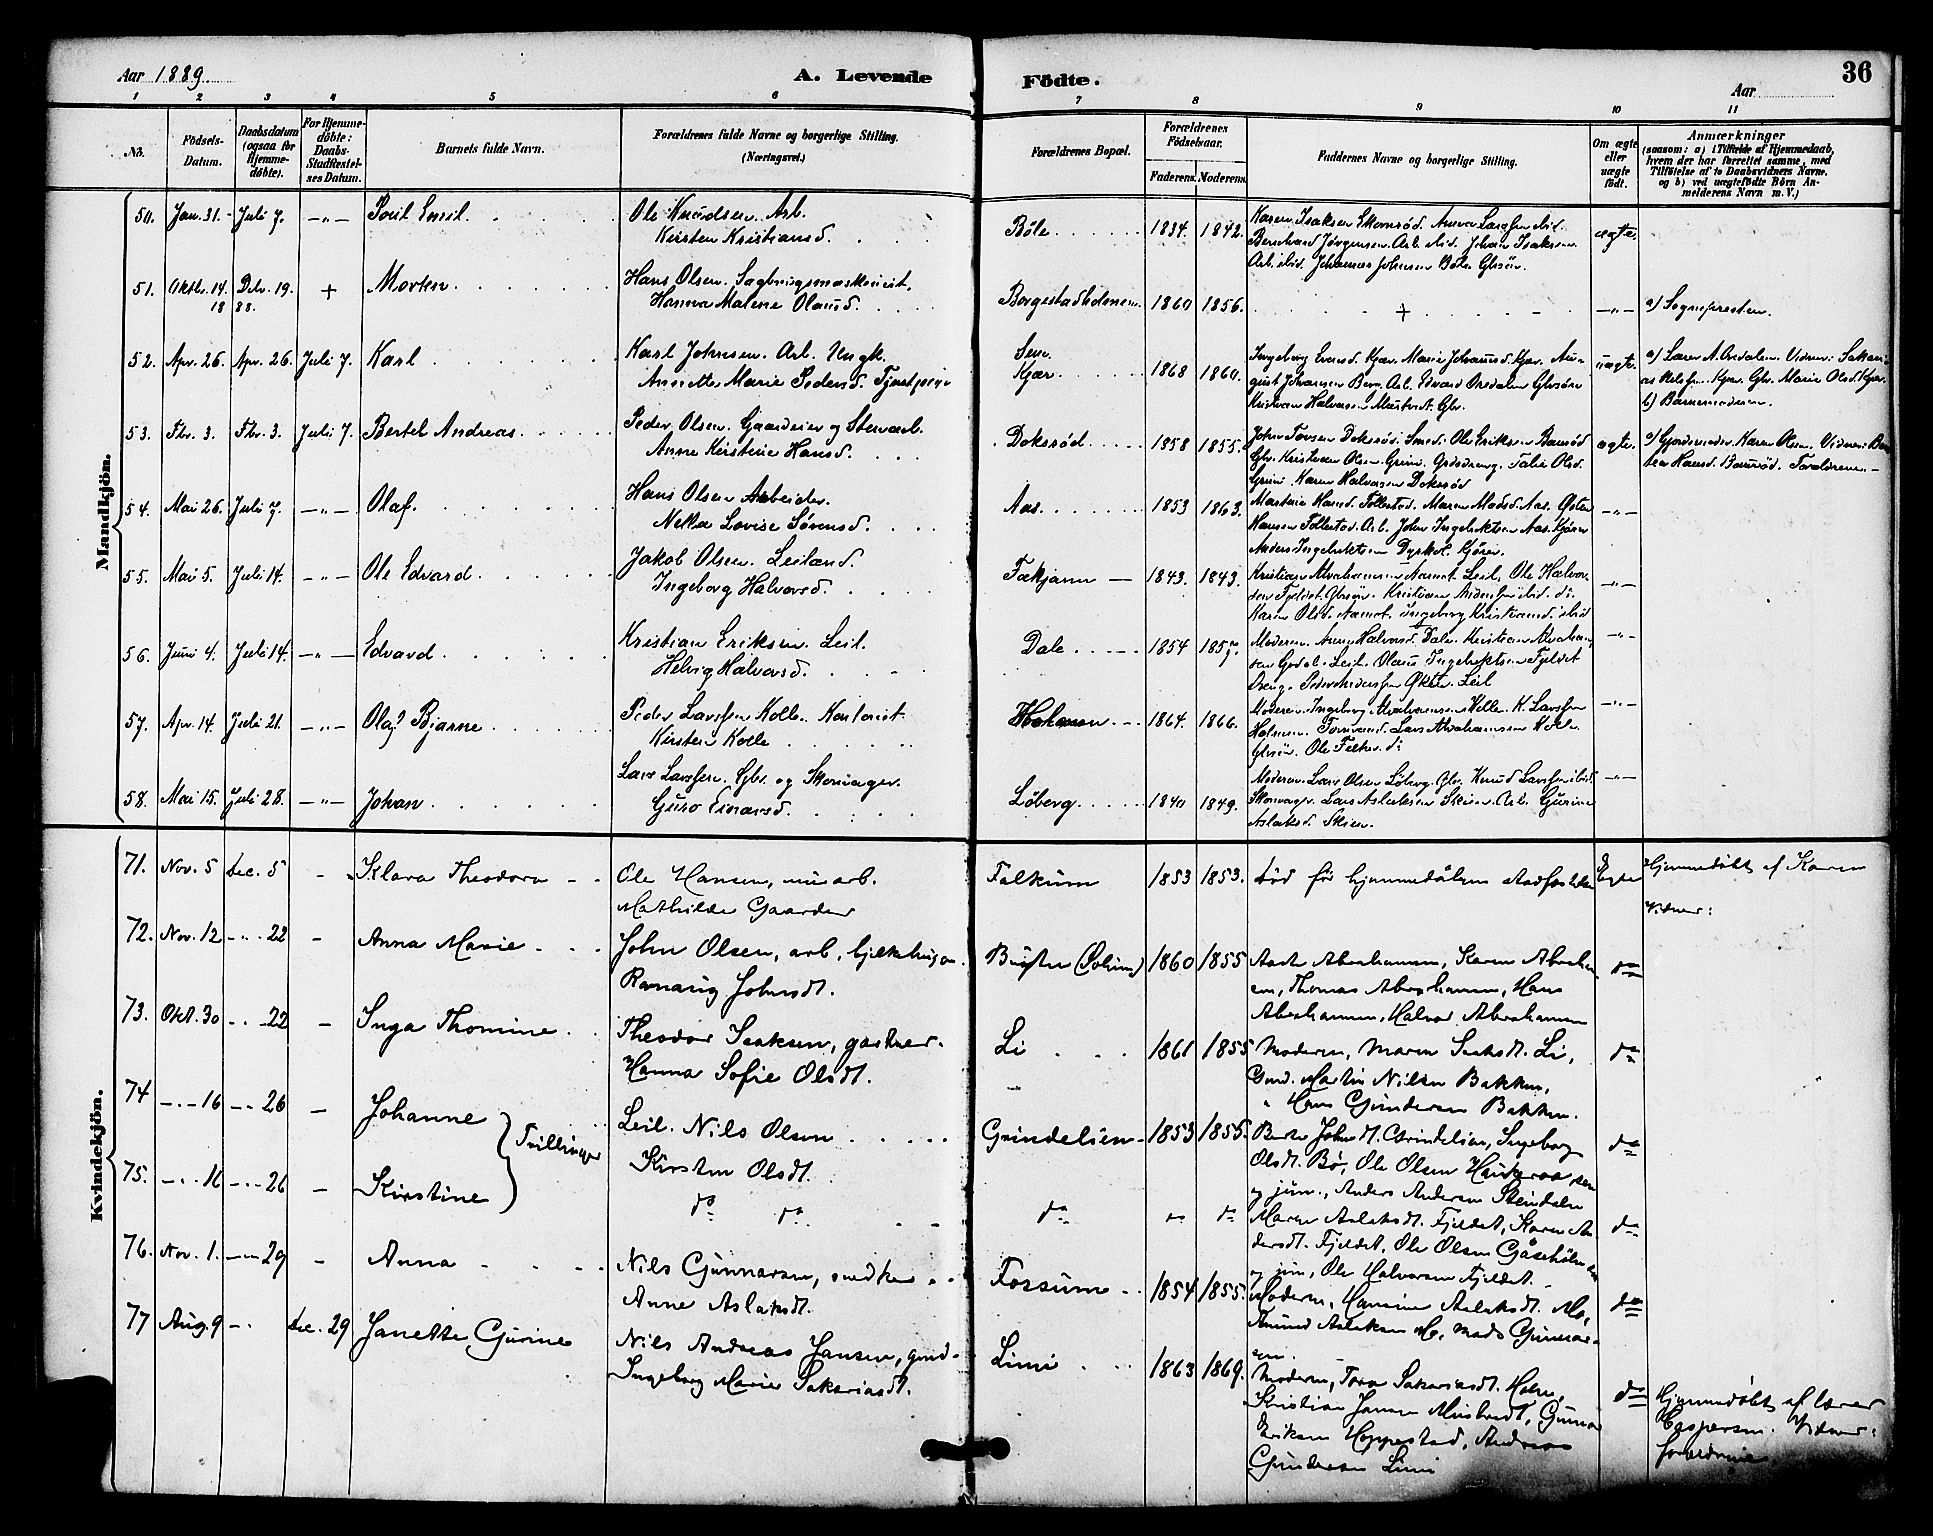 Aar 1889.
A. Levende
Födte.
Aar
36
1 2 3 4 5 6 7 8 9 10 11
No.
Födsels-
Datum.
Daabsdatum
(ogsaa for
Hjemme-
döbte).
For Hjemme-
döbte:
Daabs-
Stadfæstel-
ses Datum.
Barnets fulde Navn.
Forældrenes fulde Navne og borgerlige Stilling.
(Næringsvei.)
Forældrenes Bopæl.
Forældrenes
Födselsaar.
Faderens. Moderens.
Faddernes Navne og borgerlige Stilling.
Om ægte
eller
uægte
født.
Anmærkninger
(saasom: a) i Tilfælde af Hjemmedaab,
hvem der har forrettet samme, med
Tilföielse af to Daabsvidners Navne.
og b) ved uægtefödte Börn An-
melderens Navn m. V.)
Mandkjön.
50. Jan. 31. - Juli 7. -"- Poul Emil.
Ole Knudsen. Arb.
Kirsten Kristiansd.
Böle 1834. 1842.
Karen Isaksen Skomröd. Anna Larssen ibid.
Bernhard Jörgensen. Arb. ibid. Johan Isaksen
Arb. ibid. Johannes Johnsen Böle. Gbrsön.
ægte.
51. Oktbr. 14. Dcbr. 19. + Morten
18 88.
Hans Olsen. Sagbrugsmaskinist.
Hanna Malene Olausd.
Borgestadholmen. 1860 1856. + -"- a) Sognepresten.
52. Apr. 26. Apr. 26. Juli 7. Karl
Karl Johnsen. Arb. Ungk.
Annette Marie Pedersd. Tjenestpige
Sem.
Kjær. 1868 1860.
Ingeborg Evensd. Kjær. Marie Johannesd. Kjær. Au-
gust Johansen Berg. Arb. Edvard Oredalen Gbrsön
Kristian Halvorsen Mustvet. Gbr.
uægte.
a) Lærer A. Oredalen. Vidner: Sakari-
as Kjær. Gbr. Marie Olsd. Kjær.
b) Barnemoderen.
53. Fbr. 3. Fbr. 3. Juli 7. Bertel Andreas.
Peder Olsen. Gaardeier og Stenarb.
Anne Kirstine Hansd.
Doksröd 1858 1855.
John Torsen Doksröd. Smed. Ole Eriksen Bauröd
Gbr. Kristian Olsen. Grini. Grdsdreng. Talie Olsd.
Grini. Karen Halvorsen Doksröd
ægte.
a) Gjordemoder Karen Olsen. Vidner: Ber-
tea Hansd. Bauröd. Forældrene.-
54. Mai 26. Juli 7. -"- Olaf.
Hans Olsen Arbeider.
Nella Lovise Sörensd.
Aas. 1853 1863.
Martine Hansd. Follestad. Maren Madsd. Aas. Östen
Hansen Follestad. Arb. John Ingebrektsen Aas. Kjörer
Anders Ingebrektsen Dyrkol. Kjörer.
-"-
55. Mai 5. Juli 14. -"- Ole Edvard.
Jakob Olsen. Leiland.
Ingeborg Halvorsd.
Fækjann - 1843. 1843.
Kristian Abrahamsen Aamot. Leil. Ole Halvor-
sen Fjeldet. Gbrsön. Kristian Andersen ibid. do
Karen Olsd. Aamot. Ingeborg Kristiansd. ibid
-"-
56. Juni 4. Juli 14. -"- Edvard.
Kristian Eriksen. Leil.
Helvig Halvorsd.
Dale. 1854 1857.
Moderen. Anne Halvorsd. Dale. Kristian Abraham-
sen Leil. Olaus Ingebrektsen Fjeldet
Dreng. Peder Anderssen Økter. Leil
-"-
57. Apr. 14. Juli 21. -"- Olaf Bjarne.
Peder Larssen Kolle. Kontorist
Kirsten Kolle
Holmen. 1864. 1866.
Moderen. Ingeborg Abrahamsen Kolle. K. Larssen
Holmen. Lars Abrahamsen Kolle
Gbrsön. Ole Falker. do
-"-
58. Mai 15. Juli 28. -"- Johan
Lars Larssen. Gbr. og Skomager.
Guro Einarsd.
Löberg. 1840 1849.
Moderen. Lars Olsen Löberg. Gbr. Knud Larssen ibid.
Skomager. Lars Aslaksen Skien. Arb. Gurine
Aslaksd. Skien.
-"-
Kvindekjön.
71. Nov. 5 Dec. 5 - Klara Theodora
Ole Hansen, murarb.
Mathilde Gaarder
Falkum 1853 1853. död för hjemmedåbens stadfæstelse Egte
Hjemmedöbt af Karen
Vidner:
72. Nov. 12 -"- 22 - Anna Marie
John Olsen, arb. bjelkehugger.
Rannaug Johnsdt.
Bugten (Solum) 1860 1855
Aaste Abrahamsen, Karen Abraham-
sen, Thomas Abrahamsen, Hans
Abrahamsen, Halvor Abrahamsen
do
73. Okt. 30 -"- 22 - Inga Thomine
Theodor Isaksen, gartner.
Hanna Sofie Olsdt.
Li 1861 1855
Moderen, Maren Isaksdt. Li,
Gmd. Martin Nilsen Bakken,
" Hans Gundersen Bakken.
do
74 -"- 16 -"- 26 - Johanne
Tvillinger
Leil. Nils Olsen
Kirsten Olsdt.
Grindelien 1853 1855.
Berte Johnsdt. Grindelien, Ingeborg
Olsdt. Bö, Ole Olsen Haukeraa sen
og jun., Anders Andersen Steindalen
do
75. -"- 16 -"- 26 - Kirstine
do do
do do do
Maren Aslaksdt. Fjeldet, Karen An-
dersdt. Fjeldet, Ole Olsen Gåsehölen sen
og jun, Ole Halvorsen Fjeldet.
do
76. Nov. 1. -"- 29 - Anna
Nils Gunnarsen, snedker
Anne Aslaksdt.
Fossum 1854 1855.
Moderen, Hansine Aslaksdt. Mo,
Amund Aslaksen Mo, Mads Gunnar-
sen.
do
77 Aug. 9 -" Dec. 29 Janette Gurine
Nils Andreas Jansen, gmd.
Ingeborg Marie Sakariasdt.
Limi 1863 1869.
Moderen, Tora Sakariasdt. Holm,
Kristian Jansen Mustvedt, Gunnar
Eriksen Hoppestad, Andreas
Gundersen Limi
do
Hjemmedöbt af lærer
Caspersen. Vidner:
forældrene.